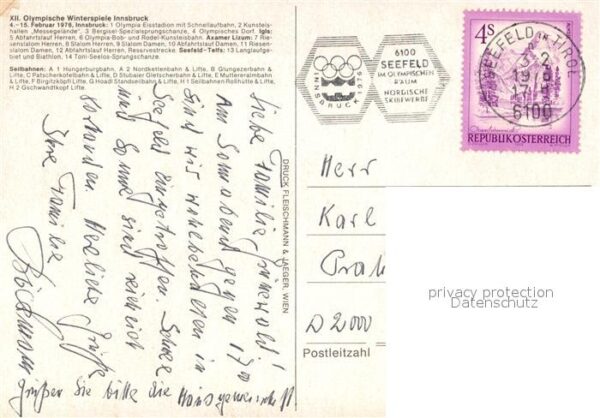 XII. Olympische Winterspiele Innsbruck
4.–15. Februar 1976, Innsbruck: 1 Olympia Eisstadion mit Schnellaufbahn, 2 Kunsteis-
hallen „Messegelände“, 3 Bergisel Spezialsprungschanze, 4 Olympisches Dorf. Igls:
5 Abfahrtslauf Herren, 6 Olympia-Bob- und Rodel-Kunsteisbahn. Axamer Lizum: 7 Rie-
senslalom Herren, 8 Slalom Herren, 9 Slalom Damen, 10 Abfahrtslauf Damen, 11 Riesen-
slalom Damen, 12 Abfahrt Reservestrecke Herren. Seefeld-Telfs: 13 Langlaufgebiet-
tet und Biathlon, 14 Toni-Seelos-Sprungschanze.
Seilbahnen: A 1 Hungerburgbahn, A 2 Nordkettenbahn & Lifte, B Glungezerbahn &
Lifte, C Patscherkofelbahn & Lifte, D Stubaier Gletscherbahn & Lifte, E Muttereralmbahn
& Lifte, F Birgitzköpfl Lifte, G Hoadl Standseilbahn & Lifte, H 1 Seilbahnen-Roßhütte & Lifte,
H 2 Gschwandtkopf Lifte.
Liebe Familie Grünewald!
Am Sonnabend gegen 17°°
sind wir wohlbehalten in
Seefeld eingetroffen. Schnee
und Sonne sind reichlich
vorhanden. Herzliche Grüße
Ihre Familie
Grüßen Sie bitte die Hausgemeinschaft.
DRUCK FLEISCHMANN & JAEGER, WIEN
INNSBRUCK 1976
6100
SEEFELD
IM OLYMPISCHEN
RAUM
NORDISCHE
SKIBEWERBE
SEEFELD IN TIROL
6100
4S
REPUBLIK ÖSTERREICH
Herr
Karl
D 2000
Postleitzahl
privacy protection
Datenschutz